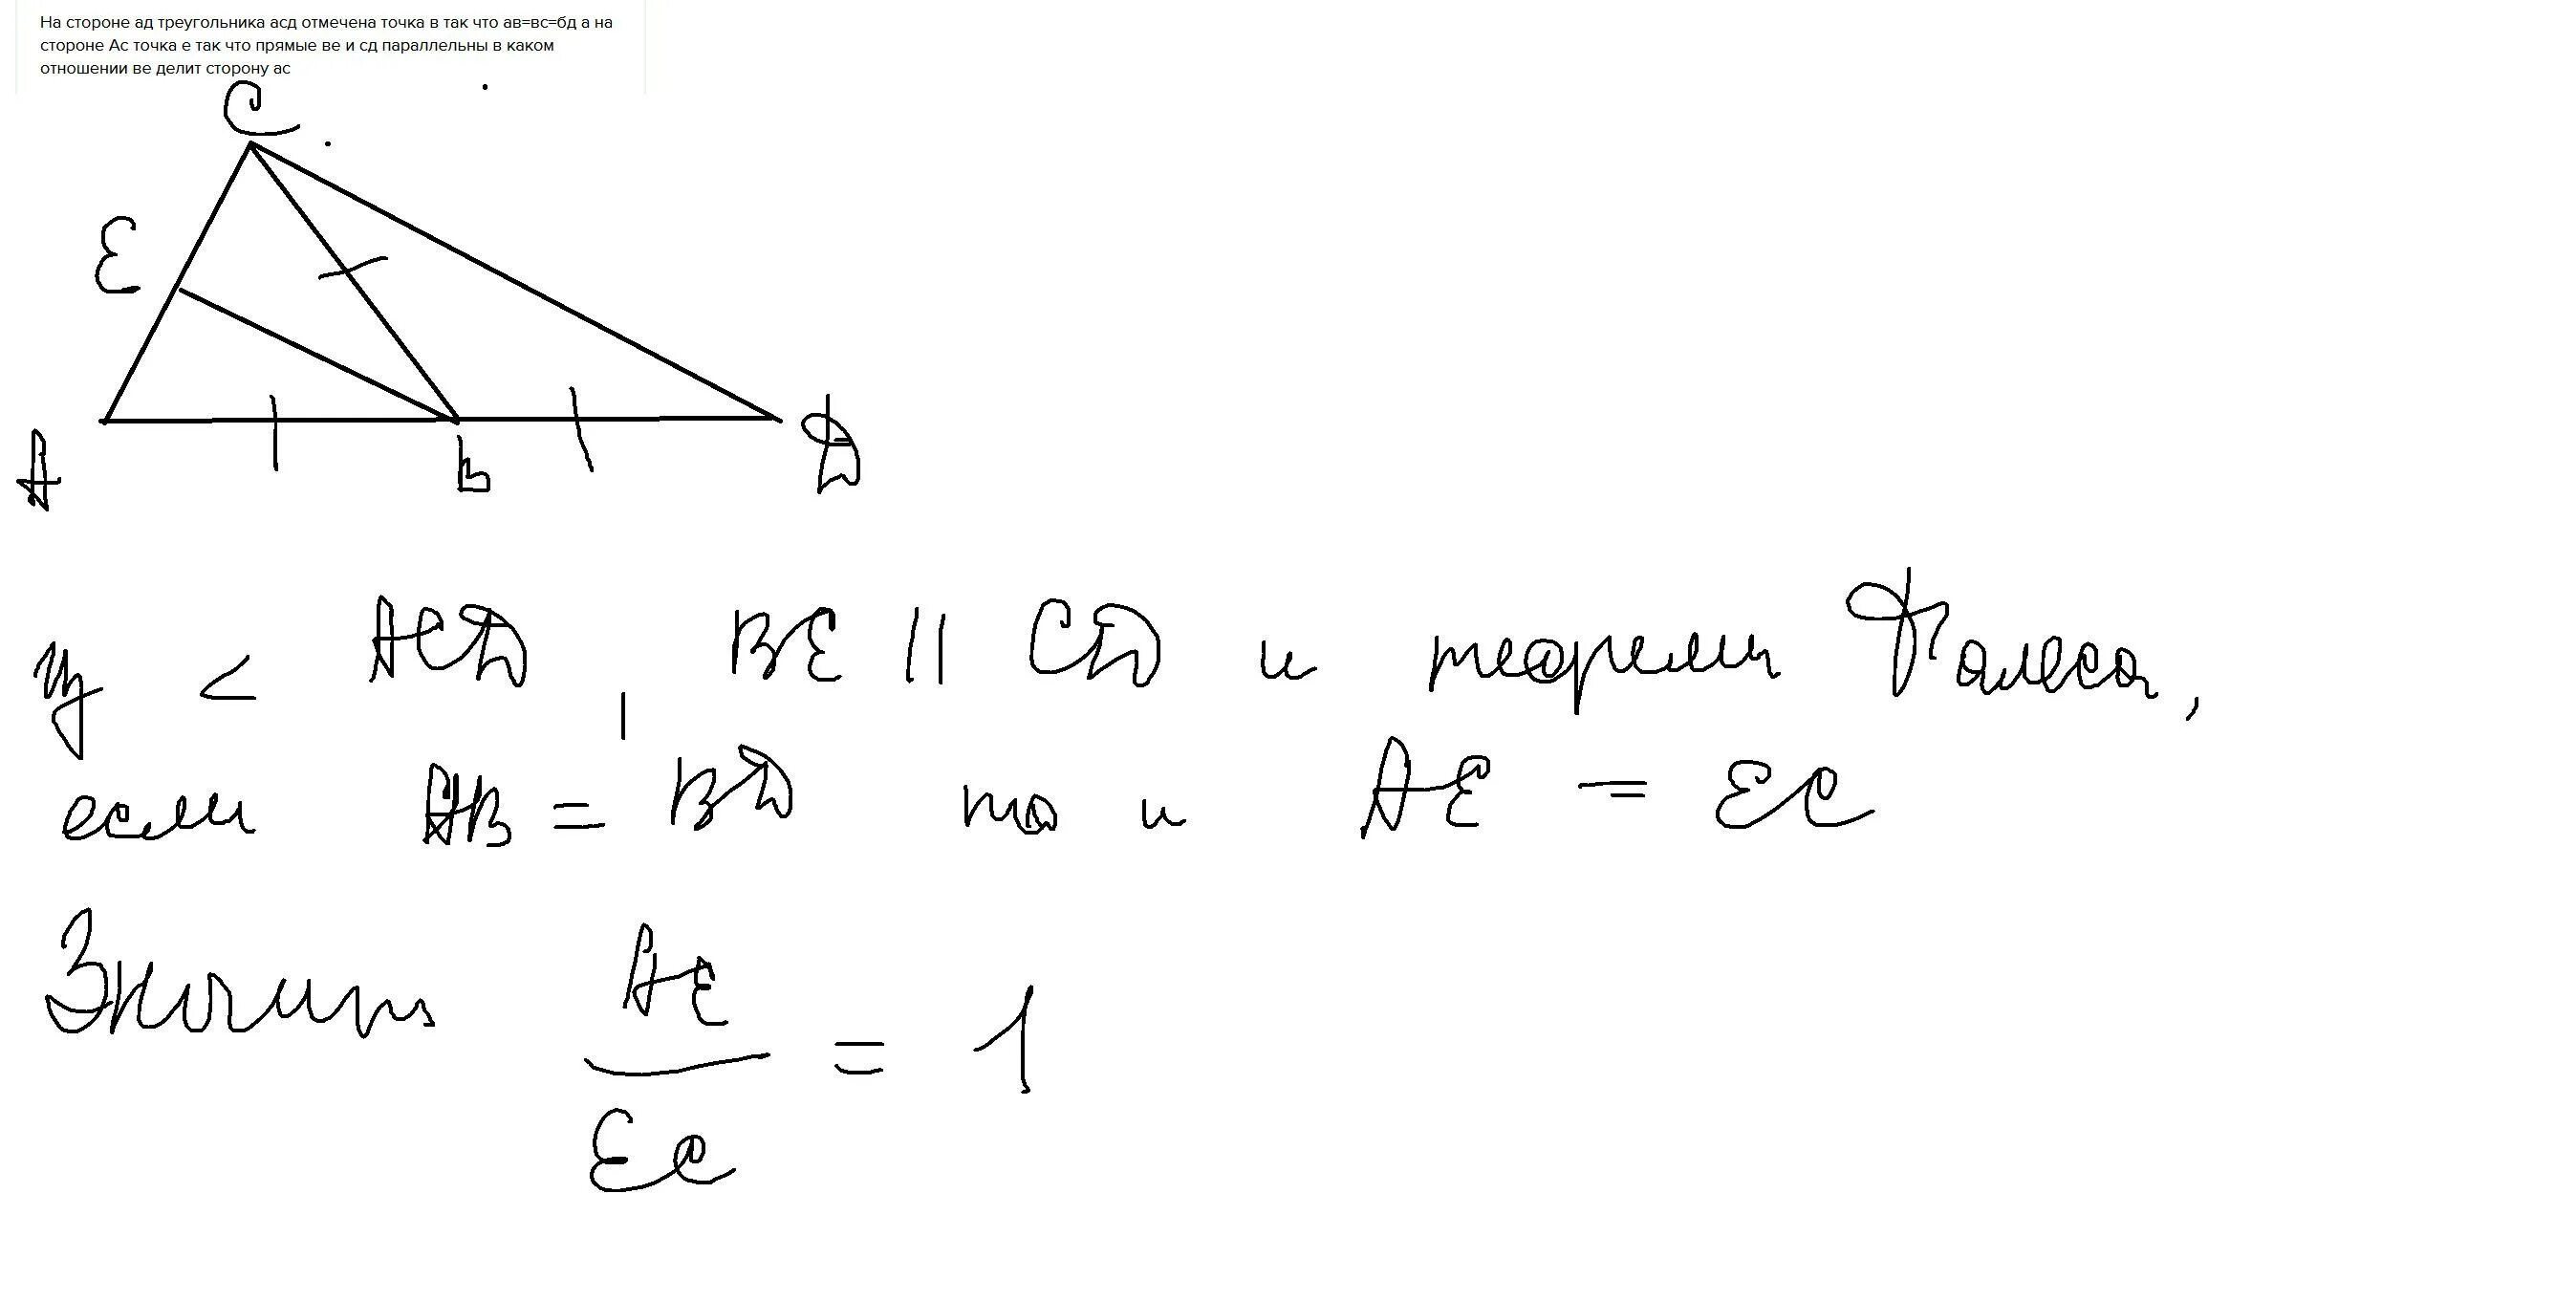 На стороне ад треугольника асд отмечена точка в так что ав=вс=бд а на
стороне Ас точка е так что прямые ве и сд параллельны в каком
отношении ве делит сторону ас
C
E
A
B
Д
Из < АСД, ВЕ || СД и теоремы Фалеса,
если АВ = ВД то и АЕ = ЕС
Значит АЕ/ЕС = 1